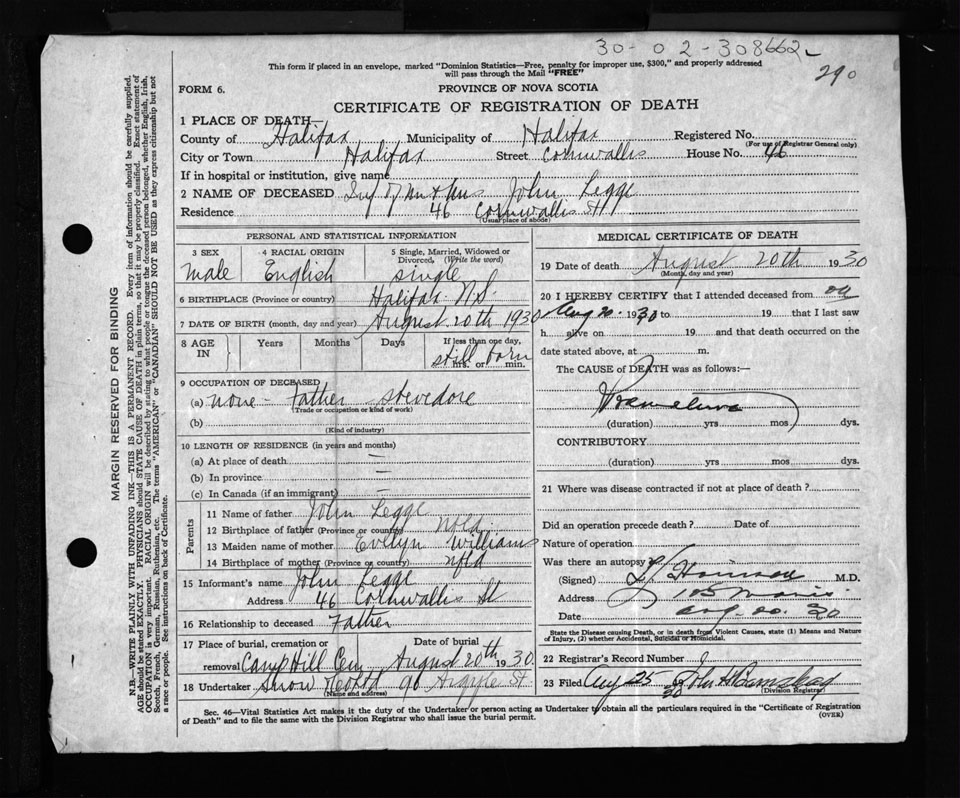 30-02-308662
290
This form if placed in an envelope, marked "Dominion Statistics—Free, penalty for improper use, $300," and properly addressed
will pass through the Mail "FREE"
FORM 6.
PROVINCE OF NOVA SCOTIA
CERTIFICATE OF REGISTRATION OF DEATH
1 PLACE OF DEATH
County of Halifax Municipality of Halifax Registered No.
(For use of Registrar General only)
City or Town Halifax Street Cornwallis House No. 46
If in hospital or institution, give name
2 NAME OF DECEASED Inf of Mr & Mrs John Legge
Residence 46 Cornwallis St
(Usual place of abode)
PERSONAL AND STATISTICAL INFORMATION
3 SEX Male
4 RACIAL ORIGIN English
5 Single, Married, Widowed or Divorced, (Write the word) single
6 BIRTHPLACE (Province or country) Halifax N.S.
7 DATE OF BIRTH (month, day and year) August 20th 1930
8 AGE IN Years Months Days If less than one day, hrs. or min. still born
9 OCCUPATION OF DECEASED
(a) none - Father stevedore
Trade or occupation or kind of work)
(b)
(Kind of industry)
10 LENGTH OF RESIDENCE (in years and months)
(a) At place of death —
(b) In province —
(c) In Canada (if an immigrant) —
Parents
11 Name of father John Legge
12 Birthplace of father (Province or country) Nfld
13 Maiden name of mother Evelyn Williams
14 Birthplace of mother (Province or country) Nfld
15 Informant's name John Legge
Address 46 Cornwallis St
16 Relationship to deceased Father
17 Place of burial, cremation or removal Camp Hill Cem Date of burial August 20th 1930
18 Undertaker Snow & Co Ltd 90 Argyle St
(Name and address)
MEDICAL CERTIFICATE OF DEATH
19 Date of death August 20th 1930
(Month, day and year)
20 I HEREBY CERTIFY that I attended deceased from on
Aug 20 1930 to 19 that I last saw
h alive on 19 and that death occurred on
date stated above, at m.
The CAUSE of DEATH was as follows:—
(duration) yrs mos dys.
CONTRIBUTORY
(duration) yrs mos dys.
21 Where was disease contracted if not at place of death?
Did an operation precede death? Date of
Nature of operation
Was there an autopsy?
(Signed) M.D.
Address 105 Morris
Date Aug. 20. 30
State the Disease causing Death, or in death from Violent Causes, state (1) Means and Nature
of Injury, (2) whether Accidental, Suicidal or Homicidal.
22 Registrar's Record Number
23 Filed Aug 25 30 John H Barnstead
(Division Registrar)
Sec. 46—Vital Statistics Act makes it the duty of the Undertaker or person acting as Undertaker to obtain all the particulars required in the "Certificate of Registration
of Death" and to file the same with the Division Registrar who shall issue the burial permit.
(OVER)
MARGIN RESERVED FOR BINDING
N.B.—WRITE PLAINLY WITH UNFADING INK—THIS IS A PERMANENT RECORD. Every item of information should be carefully supplied.
AGE should be stated EXACTLY. PHYSICIANS should STATE CAUSE OF DEATH in plain terms, so that it may be properly classified. Exact statement of
OCCUPATION is very important. RACIAL ORIGIN will be described by stating to what people or tongue the deceased person belonged, whether English, Irish,
Scotch, French, German, Russian, Ruthenian, etc. The terms "AMERICAN" or "CANADIAN" SHOULD NOT BE USED as they express citizenship but not
a race or people. See instructions on back of Certificate.